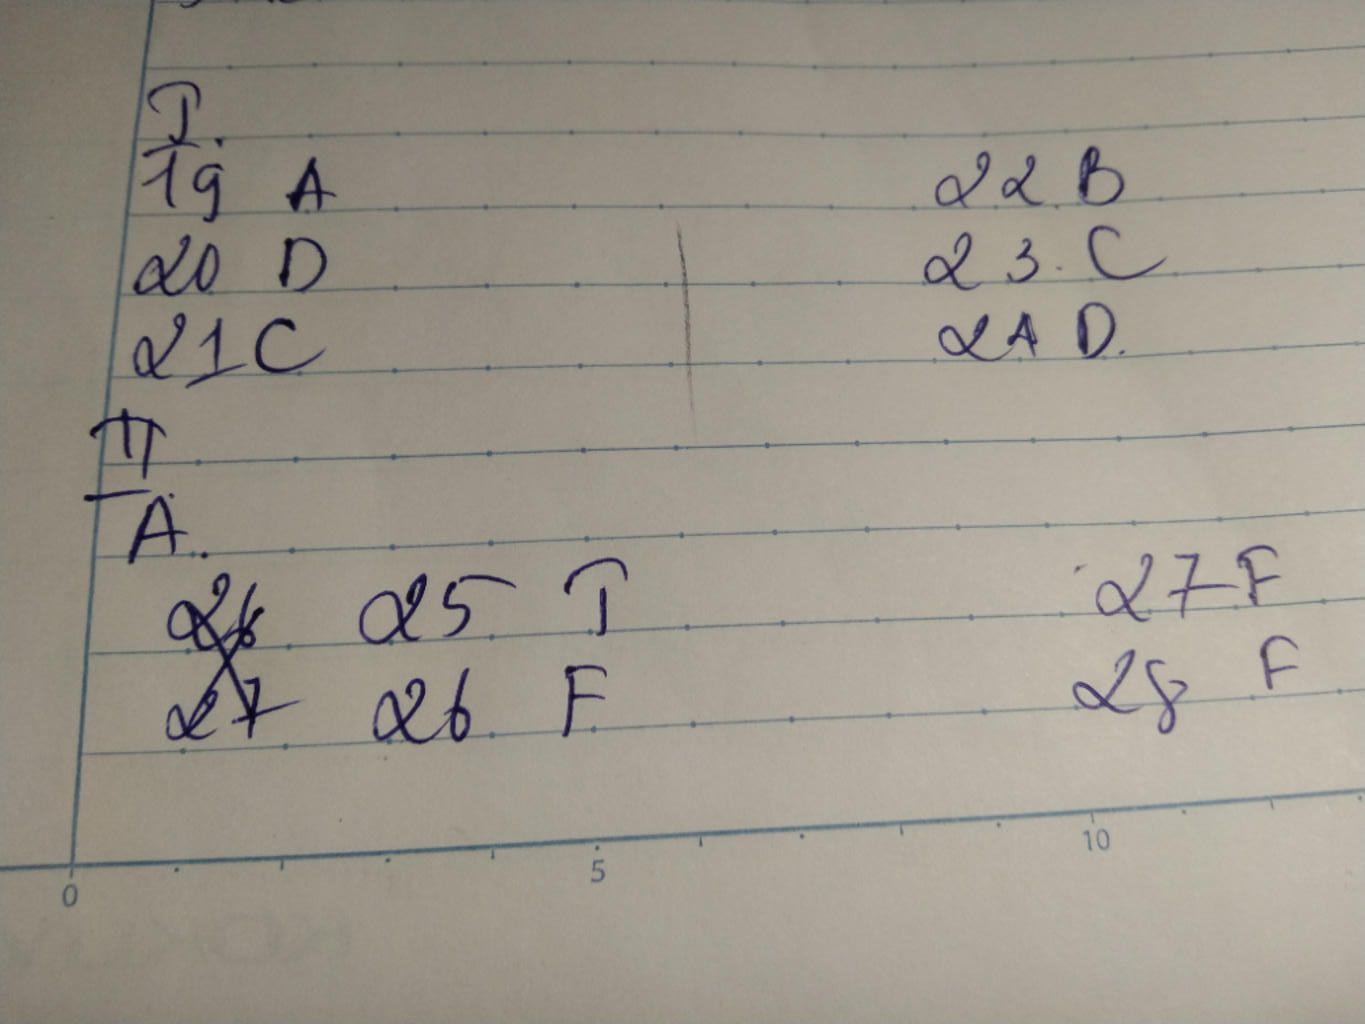 I.
19 A 22 B
20 D 23. C
21 C 24 D.
II
A.
26 25 T 27 F
27 26 F 28 F
0 5 10